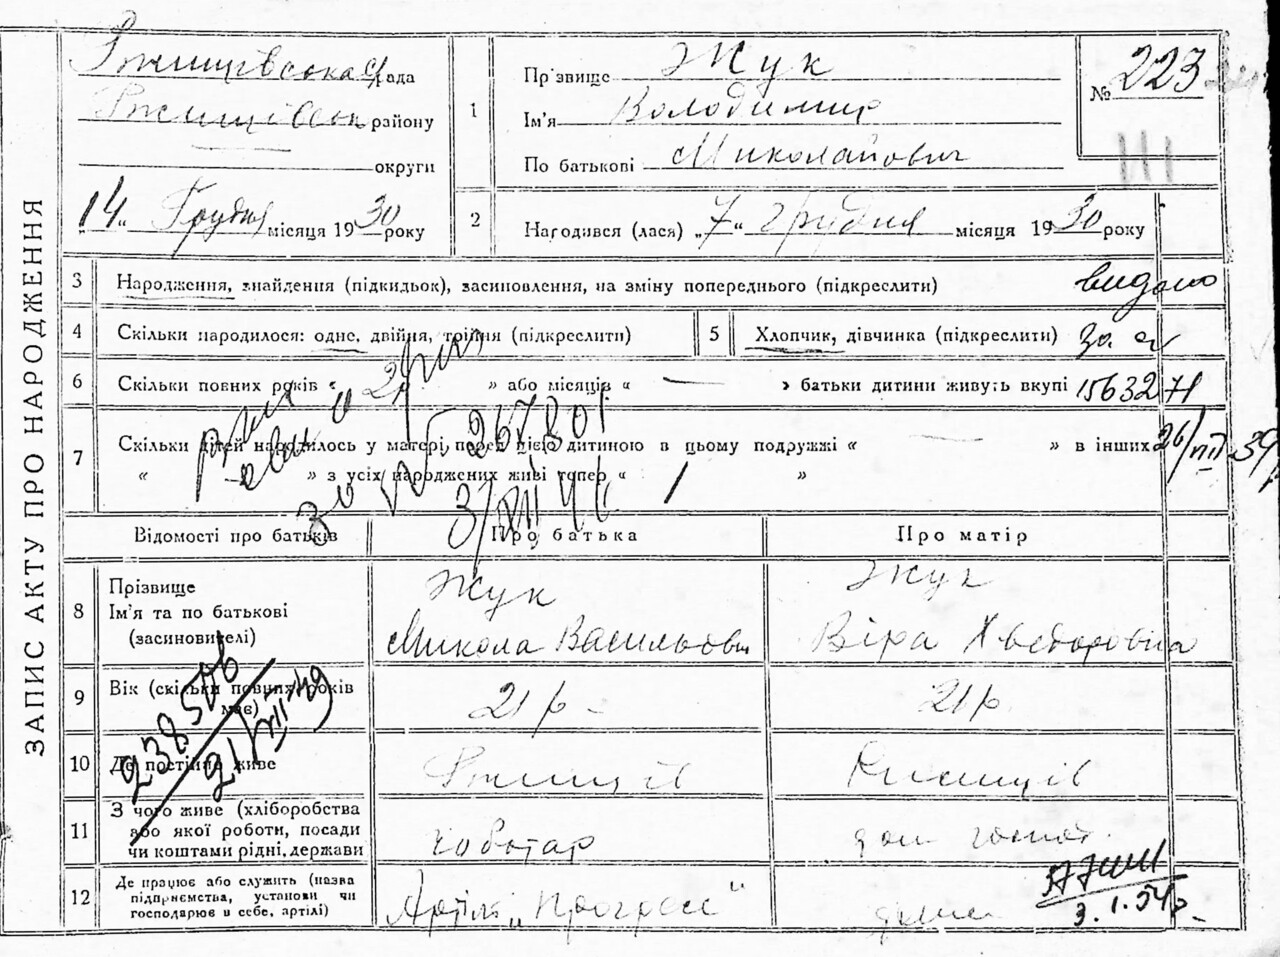 ЗАПИС АКТУ ПРО НАРОДЖЕННЯ
Ржищівська Рада
Ржищівськ району
округи
„14„ Грудня місяця 1930 року
№ 223
III
1 Прізвище Жук
Ім'я Володимир
По батькові Миколайович
2 Народився (лася) „7“ грудня місяця 1930 року
3 Народження, знайдення (підкидьок), засиновлення, на зміну попереднього (підкреслити)
видано
4 Скільки народилося: одне, двійня, трійня (підкреслити)
5 Хлопчик, дівчинка (підкреслити)
за
6 Скільки повних років « 2 » або місяців « — » батьки дитини живуть вкупі
1563271
7 Скільки дітей народилось у матері перед цією дитиною в цьому подружжі « — » в інших
« » з усіх народжених живі тепер « 1 »
26/VIII 39
267801
3/VIII 46
Відомості про батьків Про батька Про матір
8 Прізвище
Ім'я та по батькові
(засиновителі)
Жук
Микола Васильович
Жук
Віра Хведоровна
9 Вік (скільки повних років
має)
21 р. 21 р.
238506
21/VII 49
10 Де постійно живе Ржищів Ржищів
11 З чого живе (хліборобства
або якої роботи, посади
чи коштами рідні, держави
чоботар дом. госпот.
12 Де працює або служить (назва
підприємства, установи чи
господарює в себе, артілі)
Артіль „Прогрес“
3.1.54 р.